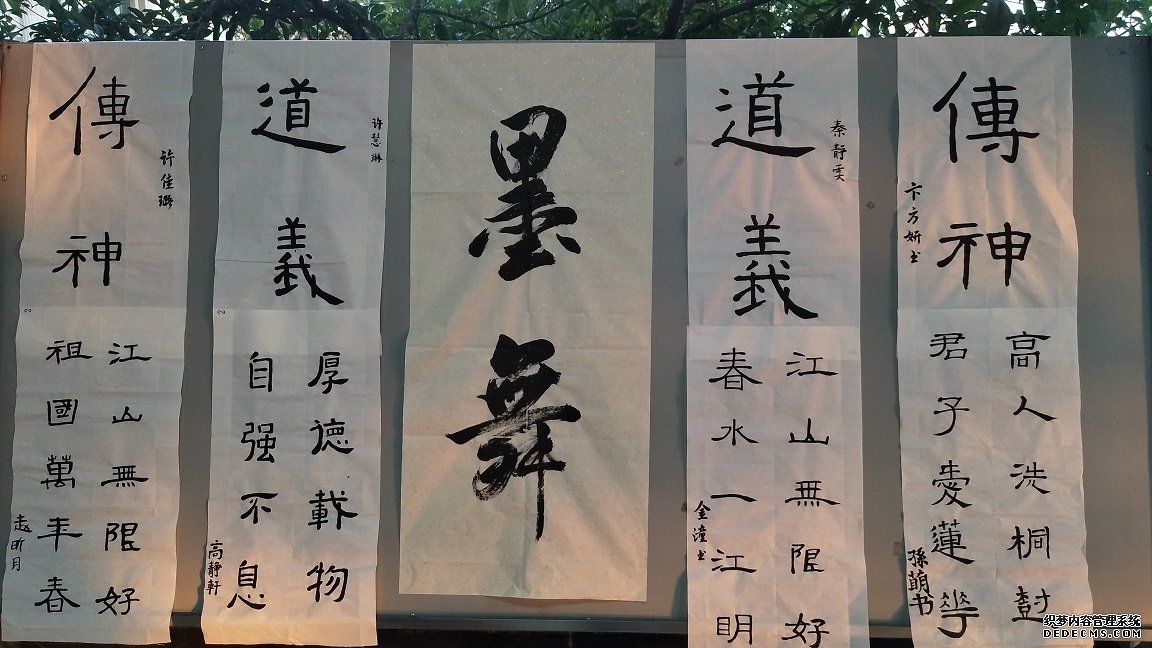 傳神
卞方妍书
高人洗桐尌
君子愛蓮
孫萌书
道義
秦静雯
江山無限好
春水一江明
金潼书
墨舞
道義
许慧琳
厚德載物
自强不息
高静軒
傳神
许佳璐
江山無限好
祖國萬年春
昕月
织梦内容管理系统
DEDECMS.COM